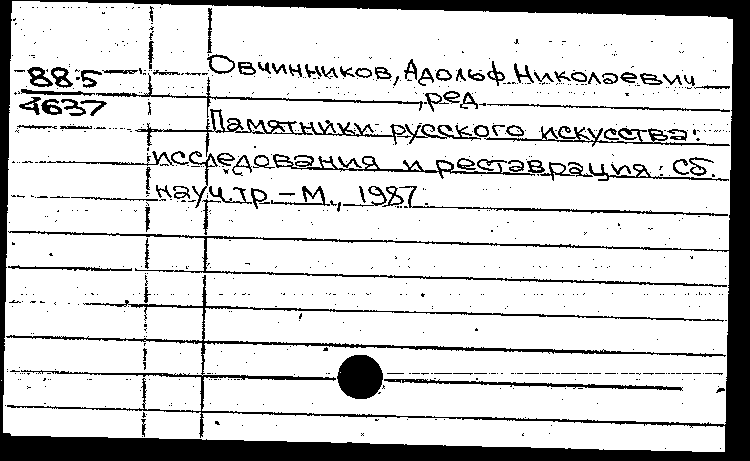 Овчинников, Адольф Николаевич
88-5
, ред.
4637
Памятники русского искусства:
исследования и реставрация: Сб.
науч. тр. – М., 1987.